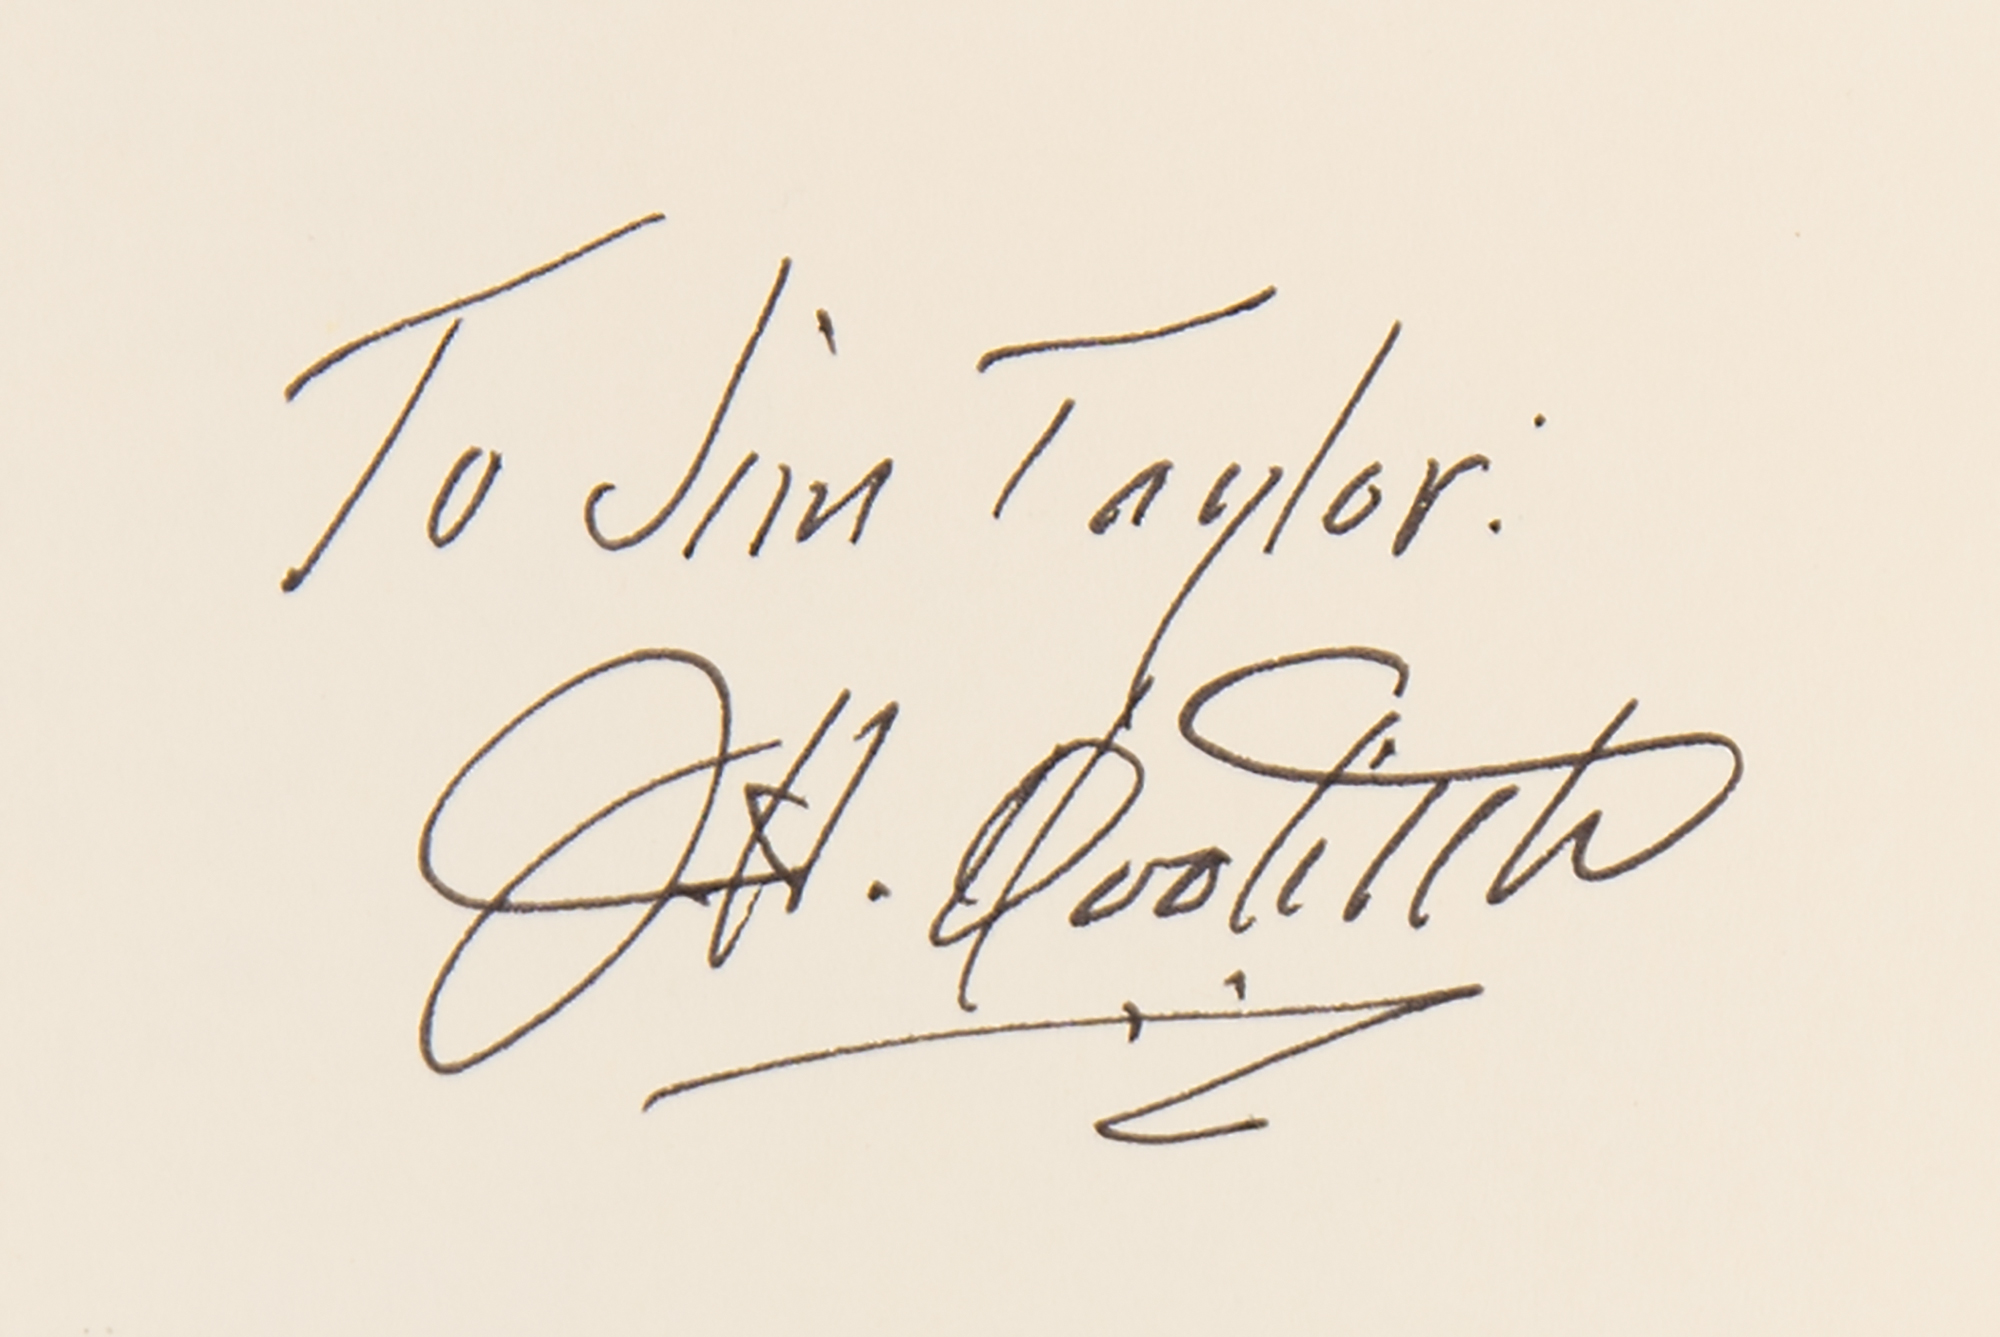 To Jim Taylor:
J.H. Doolittle